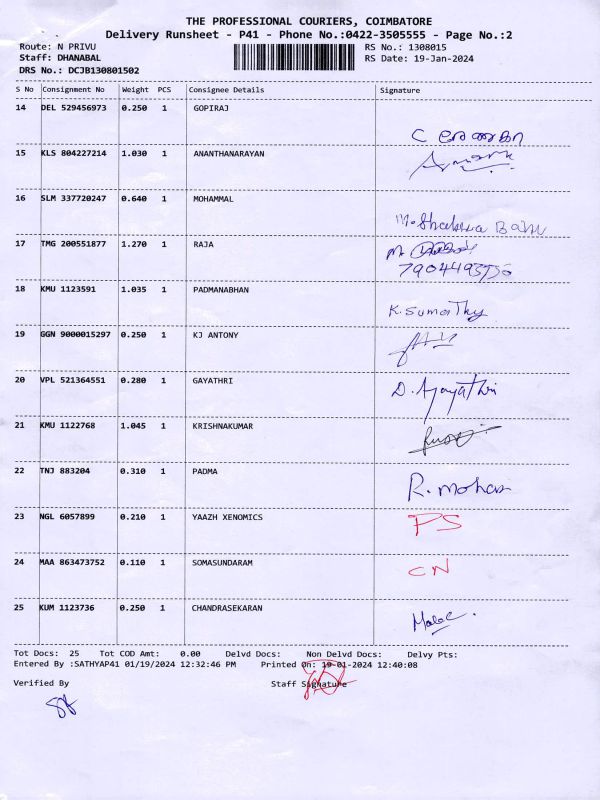 THE PROFESSIONAL COURIERS, COIMBATORE
Delivery Runsheet - P41 - Phone No.:0422-3505555 - Page No.:2
Route: N PRIVU
RS No.: 1308015
Staff: DHANABAL
RS Date: 19-Jan-2024
DRS No.: DCJB130801502
S No Consignment No Weight PCS Consignee Details Signature
14 DEL 529456973 0.250 1 GOPIRAJ
15 KLS 804227214 1.030 1 ANANTHANARAYAN
16 SLM 337720247 0.640 1 MOHAMMAL
17 TMG 200551877 1.270 1 RAJA
18 KMU 1123591 1.035 1 PADMANABHAN
K. Sumathy
19 GGN 9000015297 0.250 1 KJ ANTONY
20 VPL 521364551 0.280 1 GAYATHRI
21 KMU 1122768 1.045 1 KRISHNAKUMAR
22 TNJ 883204 0.310 1 PADMA
R. mohan
23 NGL 6057899 0.210 1 YAAZH XENOMICS
PS
24 MAA 863473752 0.110 1 SOMASUNDARAM
CN
25 KUM 1123736 0.250 1 CHANDRASEKARAN
Tot Docs: 25 Tot COD Amt: 0.00 Delvd Docs: Non Delvd Docs: Delvy Pts:
Entered By :SATHYAP41 01/19/2024 12:32:46 PM Printed On: 19-01-2024 12:40:08
Verified By Staff Signature